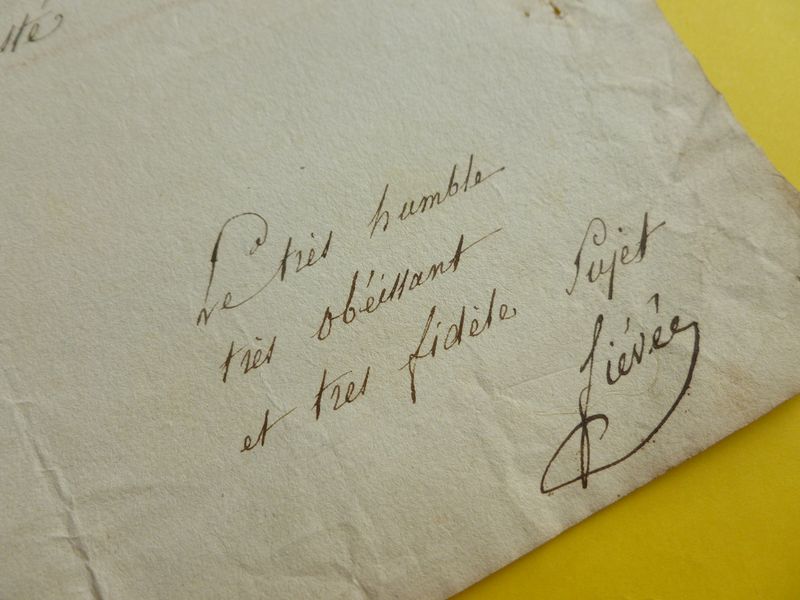 sté
Le très humble
très obéissant
et tres fidèle Sujet
fiévée